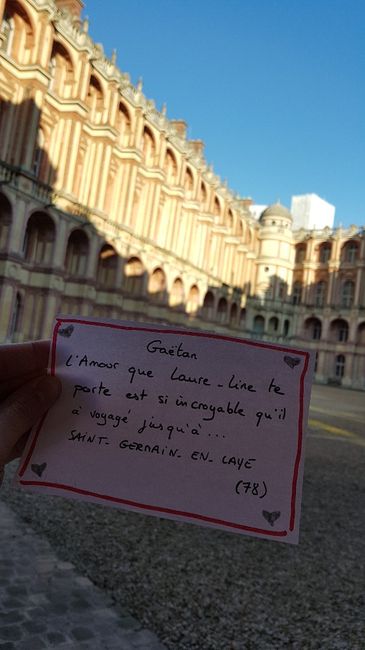 Gaëtan
L'Amour que Laure-Line te
porte est si incroyable qu'il
a voyagé jusqu'à...
SAINT-GERMAIN-EN-LAYE
(78)